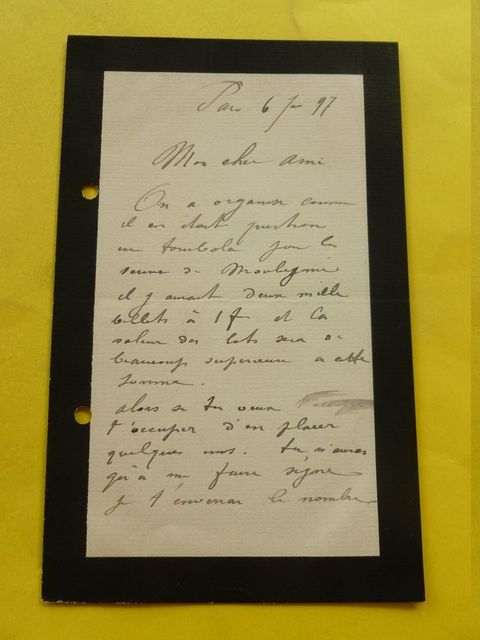 Paris 6 Jan 97
Mon cher Ami
On a organisé comme
il en était question
une tombola pour la
veuve de
il y aurait deux mille
billets à 1 f et la
valeur des lots sera de
beaucoup supérieure à cette
somme.
alors si tu veux
t'occuper d'en placer
quelques uns. tu n'auras
qu'à me faire signe
je t'enverrai le nombre